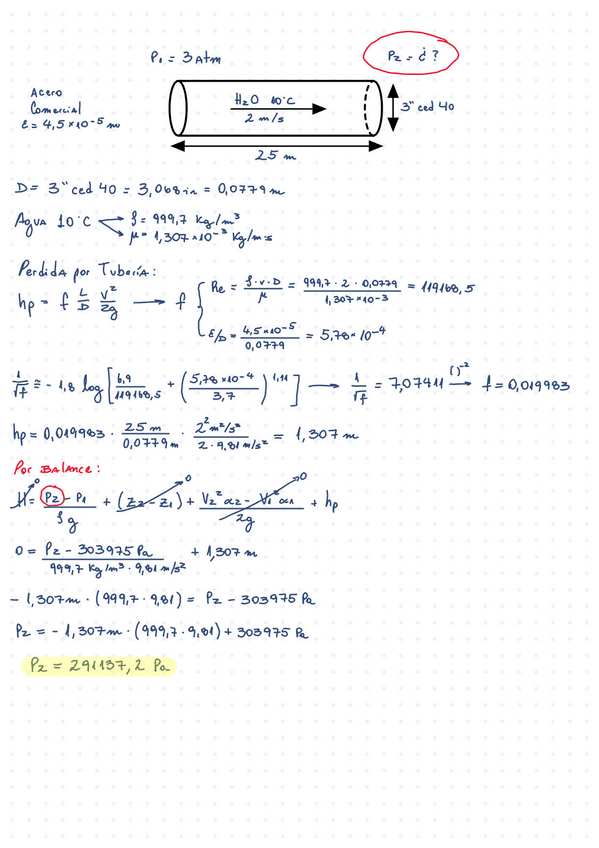 P₁ = 3 Atm
P₂ = ¿ ?
Acero
Comercial
ε = 4,5 × 10⁻⁵ m
H₂O 10°C
2 m/s
3" ced 40
25 m
D = 3" ced 40 = 3,068 in = 0,0779 m
Agua 10°C → ρ = 999,7 Kg/m³
→ μ = 1,307 × 10⁻³ Kg/m·s
Perdida por Tubería:
hp = f L/D V²/2g → f { Re = ρ·v·D/μ = 999,7 · 2 · 0,0779 / 1,307 × 10⁻³ = 119168,5
ε/D = 4,5 × 10⁻⁵ / 0,0779 = 5,78 × 10⁻⁴
1/√f ≅ - 1,8 log [ 6,9/119168,5 + ( 5,78 × 10⁻⁴ / 3,7 )^1,11 ] → 1/√f = 7,07411 →()⁻² f = 0,019983
hp = 0,019983 · 25 m / 0,0779 m · 2² m²/s² / 2 · 9,81 m/s² = 1,307 m
Por Balance:
H⁰ = P₂ - P₁ / ρg + (Z₂ - Z₁)⁰ + V₂² α₂ - V₁² α₁ / 2g ⁰ + hp
0 = P₂ - 303975 Pa / 999,7 Kg/m³ · 9,81 m/s² + 1,307 m
- 1,307 m · (999,7 · 9,81) = P₂ - 303975 Pa
P₂ = - 1,307 m · (999,7 · 9,81) + 303975 Pa
P₂ = 291137,2 Pa